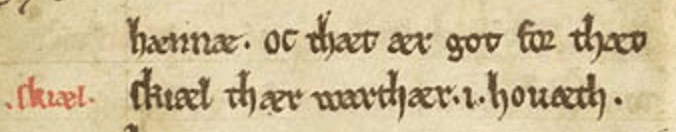 hænnæ. oc thæt ær got for thæt
.skiæl. skiæl thær warthær.i.houæth.